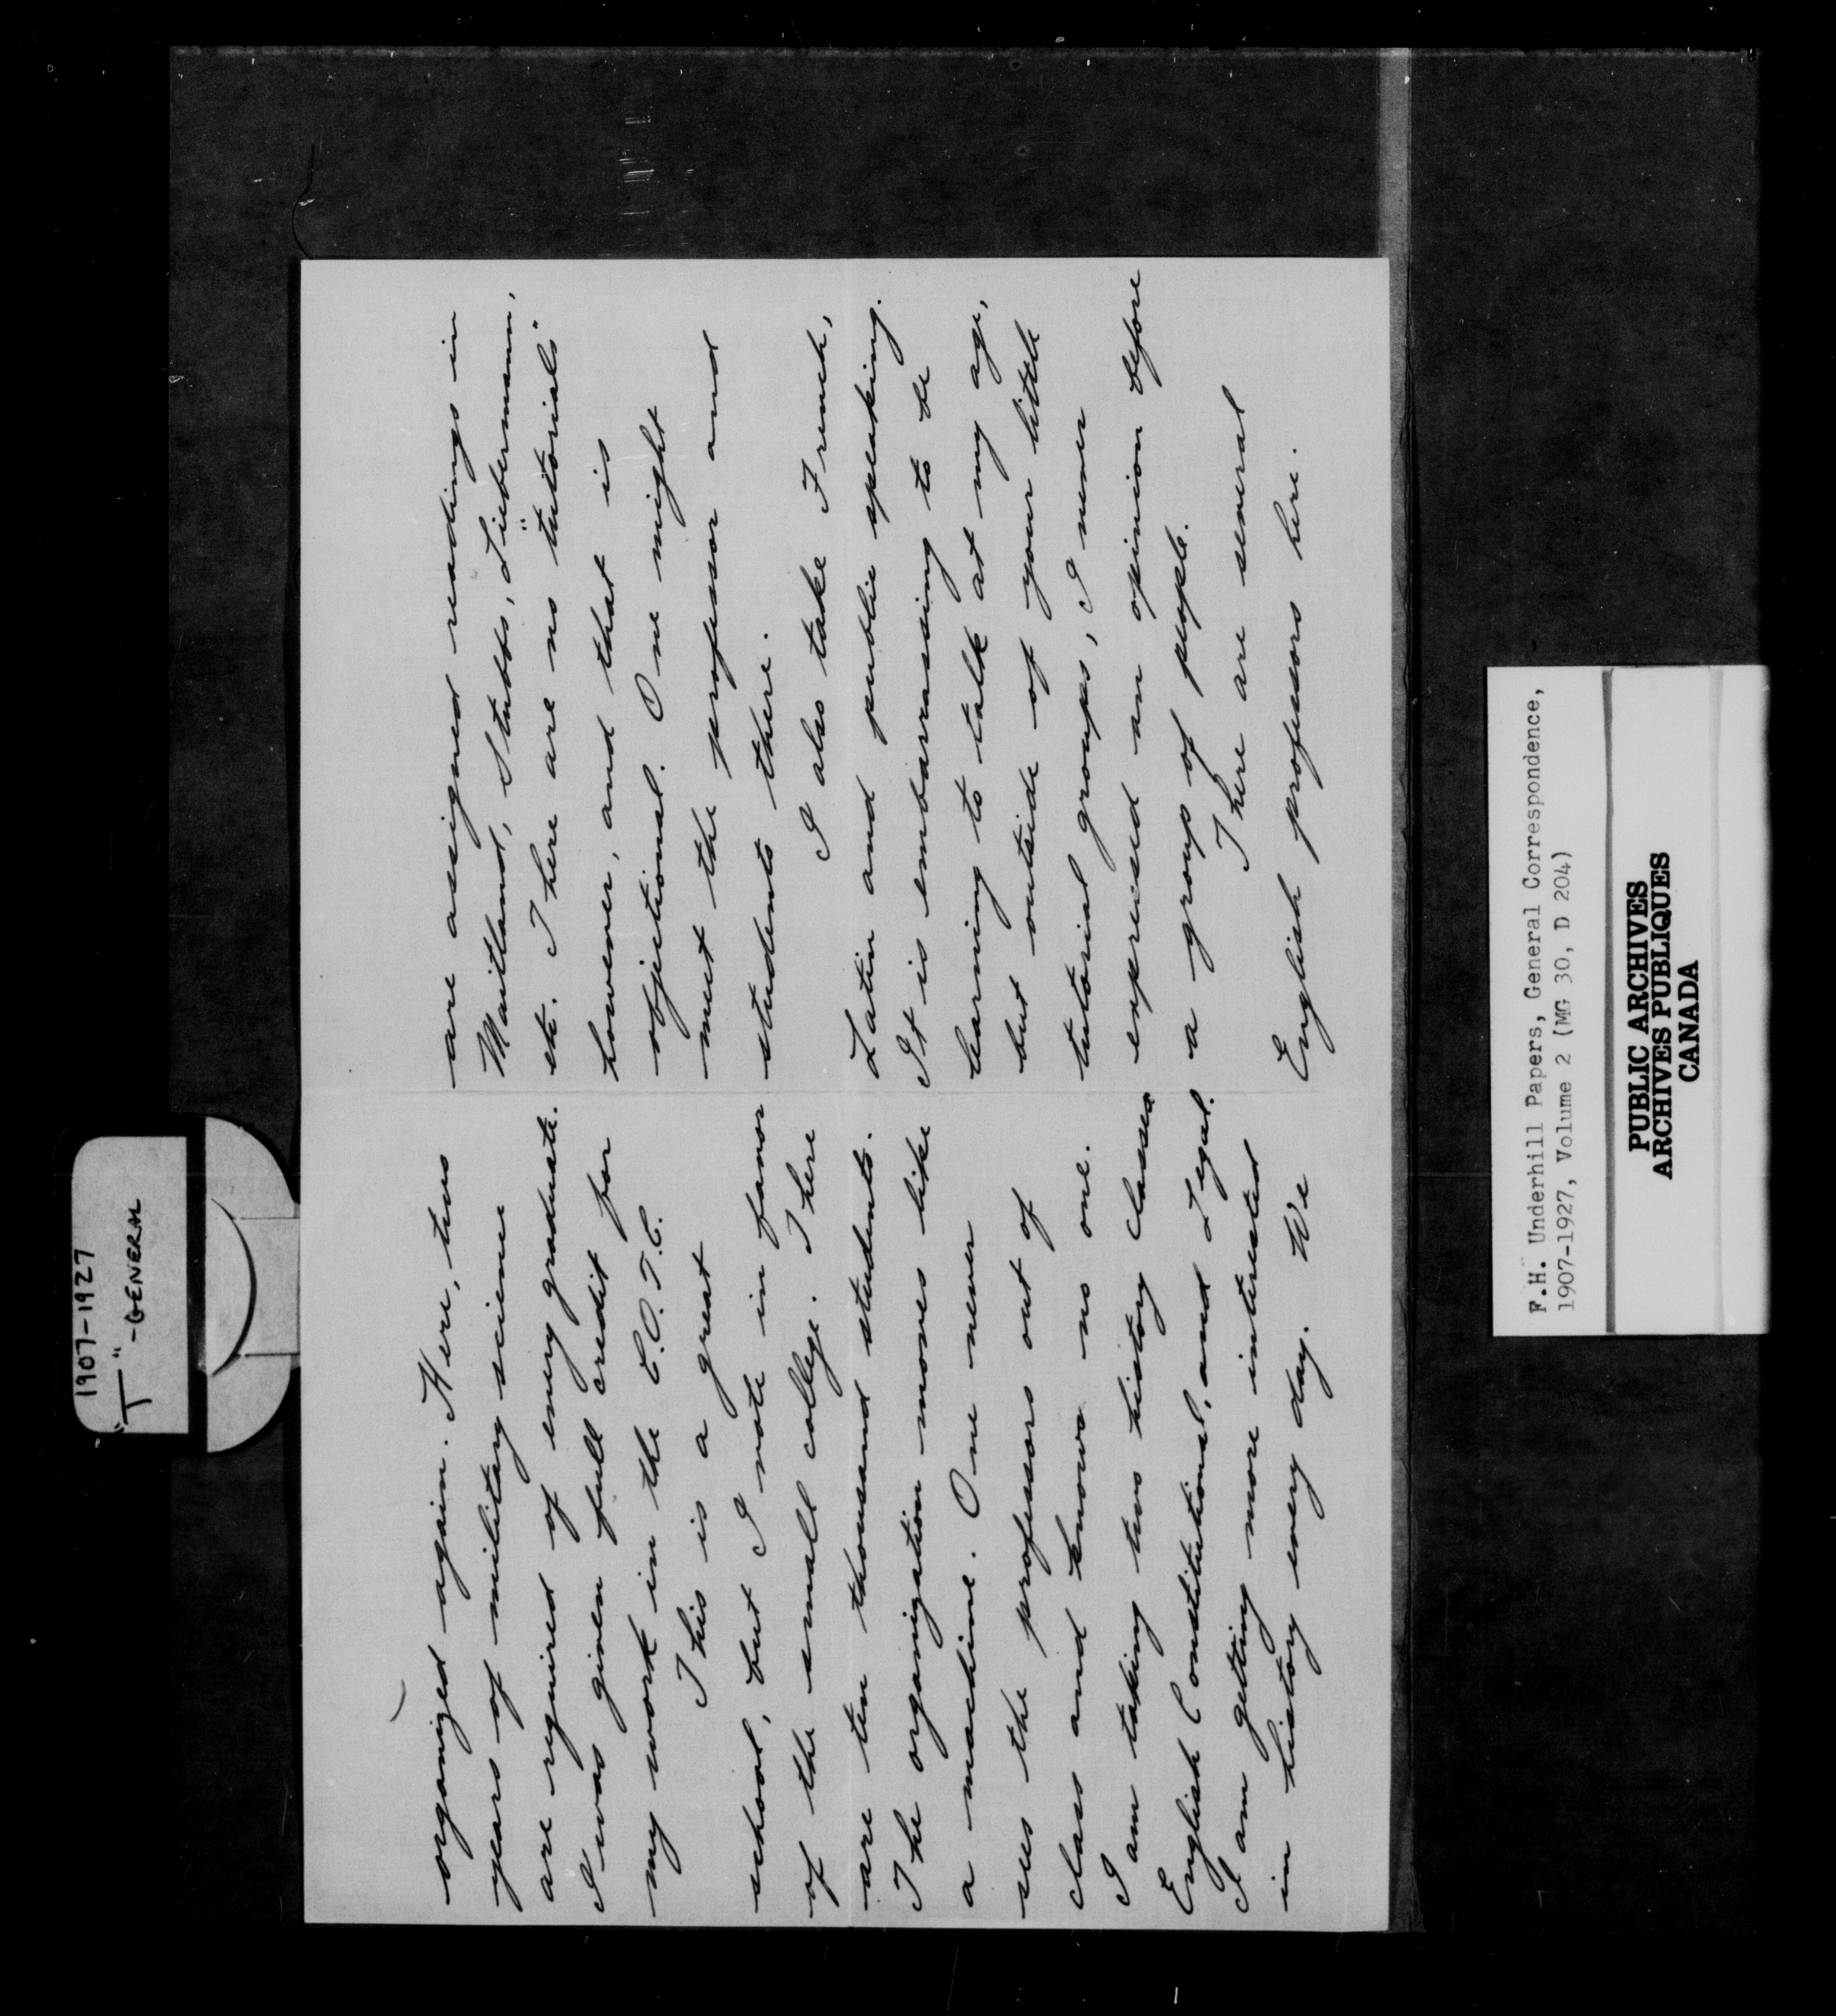 1907-1927
"T" - GENERAL
organized again. Here, two
years of military science
are required of every graduate.
I was given full credit for
my work in the C.O.T.C.
This is a great
school, but I vote in favor
of the small college. There
are ten thousand students.
The organization moves like
a machine. One never
sees the professors out of
class and knows no one.
I am taking two history classes
English Constitutional, and Legal.
I am getting more interested
in history every day. We
are assigned readings in
Maitland, Stubbs, Liebermann,
etc. There are no "tutorials"
however, and that is
objectional. One might
meet the professor and
students there.
I also take French,
Latin and public speaking.
It is embarrassing to be
learning to talk at my age,
but outside of your little
tutorial groups, I never
expressed an opinion before
a group of people.
There are several
English professors here.
F.H. Underhill Papers, General Correspondence,
1907-1927, Volume 2 (MG 30, D 204)
PUBLIC ARCHIVES
ARCHIVES PUBLIQUES
CANADA